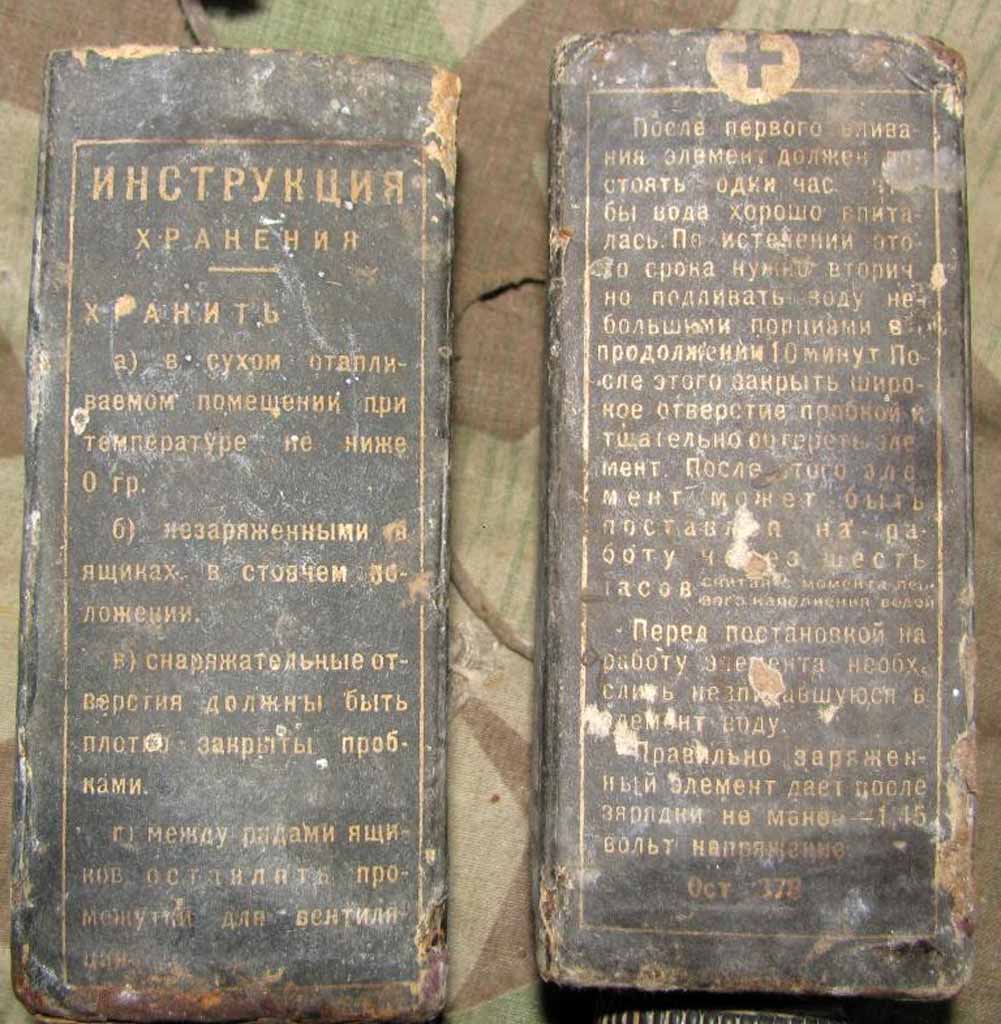 ИНСТРУКЦИЯ
ХРАНЕНИЯ
ХРАНИТЬ
а) в сухом отапли-
ваемом помещении при
температуре не ниже
0 гр.
б) незаряженными в
ящиках в стоячем по-
ложении.
в) снаряжательные от-
верстия должны быть
плотно закрыты проб-
ками.
г) между рядами ящи-
ков оставлять про-
межутки для вентиля-
ции.
После первого влива-
ния элемент должен по-
стоять один час
бы вода хорошо впита-
лась. По истечении это-
го срока нужно вторич
но подливать воду не-
большими порциями в
продолжении 10 минут По-
сле этого закрыть широ-
кое отверстие пробкой и
тщательно обтереть эле
мент. После этого эле
мент может быть
поставлен на ра-
боту через шесть
часов считая с момента пер-
вого наполнения водой
Перед постановкой на
работу элемента необх.
слить невпитавшуюся в
элемент воду.
Правильно заряжен-
ный элемент дает после
зярядки не менее —1,45
вольт напряжение
Ост 178